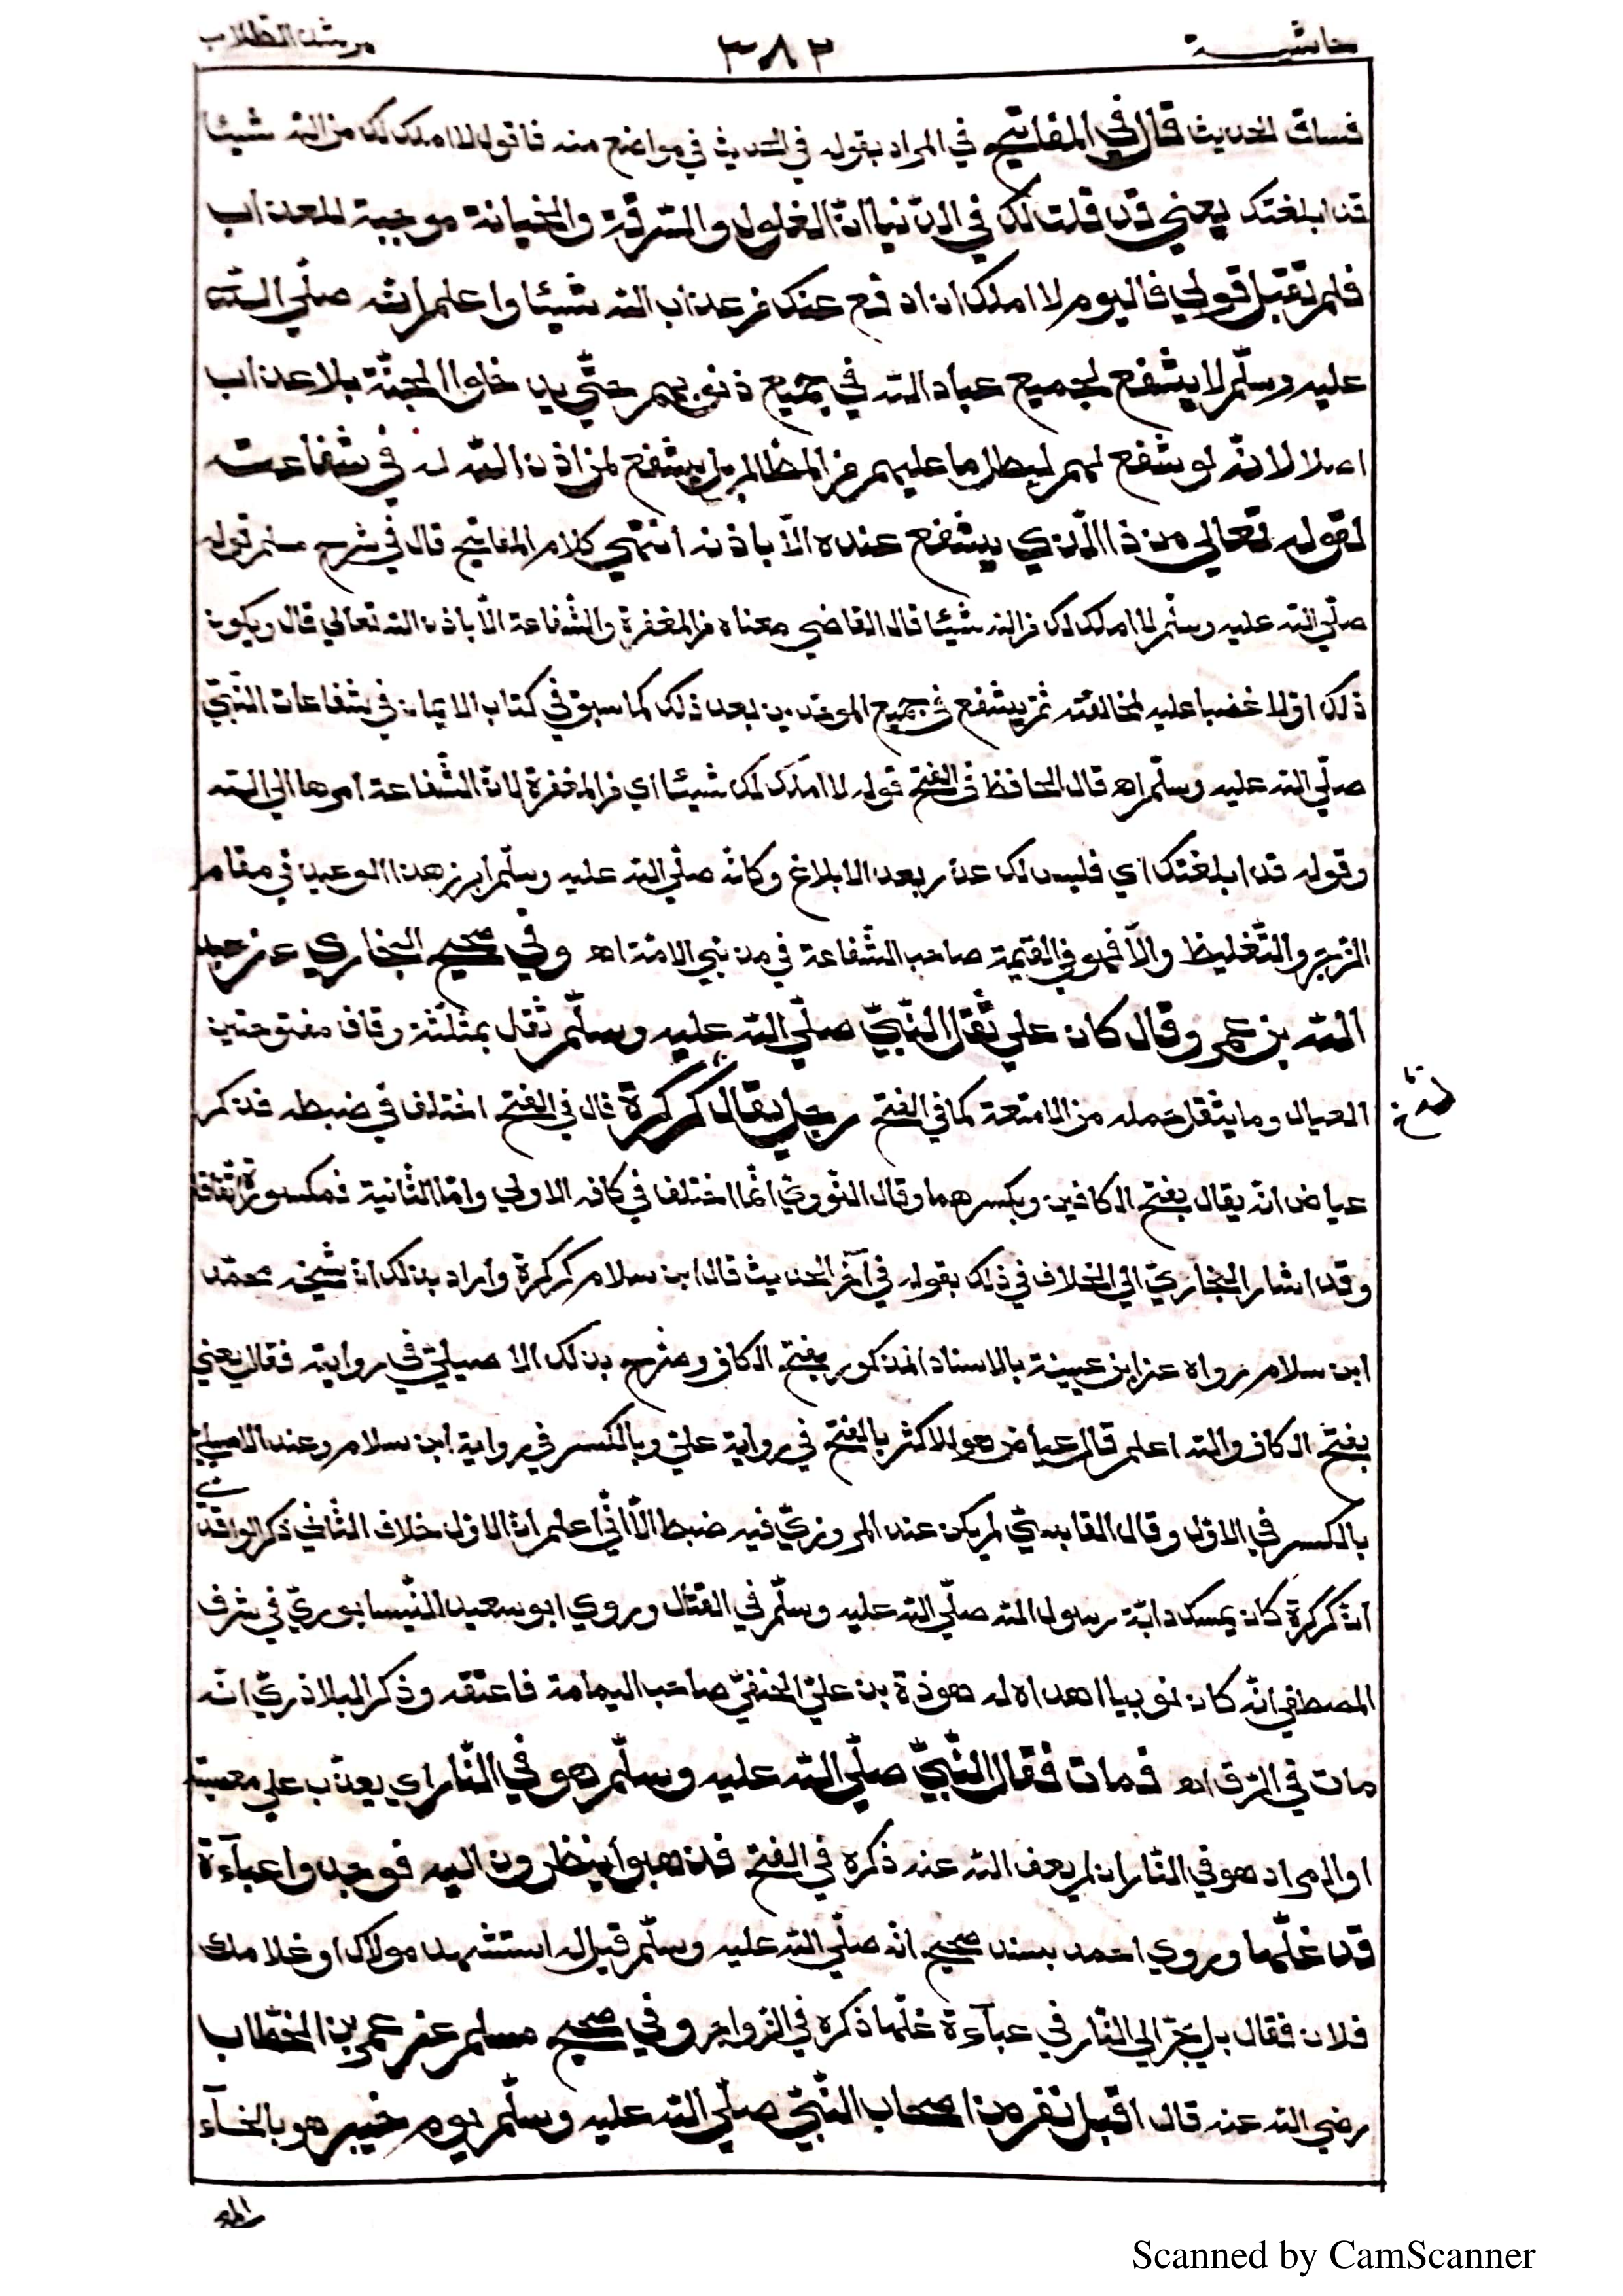 حاشيــــة ٣٨٢ مرشد الطلاب
فساق الحديث قال في المفاتيح في المراد بقوله في الحديث في مواضع منه فاقول لا املك لك من الله شيئا
قد ابلغتك يعني قد قلت لك في الدنيا انّ الغلول والسّرقة والخيانة موجبة للعذاب
فلم تقبل قولي فاليوم لا املك ان ادفع عنك من عذاب الله شيئا واعلم انّه صلّي اللّه
عليه وسلّم لا يشفع لجميع عباد الله في جميع ذنوبهم حتّي يدخلوا الجنّة بلا عذاب
اصلا لانّه لو شفع لهم لبطل ما عليهم من المظالم بل يشفع لمن اذن اللّه له في شفاعته
لقوله تعالي من ذا الّذي يشفع عنده الّا باذنه انتهي كلام المفاتيح قال في شرح مسلم قوله
صلّي الله عليه وسلّم لا املك لك من الله شيئا قال القاضي معناه من المغفرة والشّفاعة الّا باذن الله تعالي قال ويكون
ذلك اوّلا غضبا عليه لمخالفته ثمّ يشفع في جميع الموحّدين بعد ذلك كما سبق في كتاب الايمان في شفاعات النّبيّ
صلّي الله عليه وسلّم اه قال الحافظ في الفتح قوله لا املك لك شيئا اي من المغفرة لانّ الشّفاعة امرها الي الله
وقوله قد ابلغتك اي فليس لك عذر بعد الابلاغ وكانّه صلّي الله عليه وسلّم ابرز هذا الوعيد في مقام
الزّجر والتّغليظ والّا فهو في القيمة صاحب الشّفاعة في مذنبي الامّة اه وفي صحيح البخاري عن عبد
اللّه بن عمرو قال كان علي ثقل النّبيّ صلّي الله عليه وسلّم ثقل بمثلّثة وقاف مفتوحتين
العيال وما يثقل حمله من الامتعة كما في الفتح رجل يقال كركرة قال في الفتح اختلف في ضبطه فذكر
عياض انّه يقال بفتح الكافين وبكسرهما وقال النّوويّ انّما اختلف في كافه الاولي وامّا الثّانية فمكسورة اتّفاقا
وقد اشار البخاريّ الي الخلاف في ذلك بقوله في آخر الحديث قال ابن سلام كركرة واراد بذلك انّ شيخه محمّد
ابن سلام رواه عن ابن عيينة بالاسناد المذكور بفتح الكاف وصرّح بذلك الاصيليّ في روايته فقال يعني
بفتح الكاف والله اعلم قال عياض هو للاكثر بالفتح في رواية عليّ وبالكسر في رواية ابن سلام وعند الاصيليّ
بالكسر في الاوّل وقال القابسيّ لم يكن عند المروزيّ فيه ضبط الّا انّي اعلم انّ الاوّل خلاف الثّاني ذكر الواقديّ
انّ كركرة كان يمسك دابّة رسول الله صلّي الله عليه وسلّم في القتال وروي ابو سعيد النّيسابوريّ في شرف
المصطفي انّه كان نوبيا اهداه له هوذة بن عليّ الحنفيّ صاحب اليمامة فاعتقه وذكر البلاذريّ انّه
مات في الرّق اه فمات فقال النّبيّ صلّي الله عليه وسلّم هو في النّار اي يعذّب علي معصيته
او المراد هو في النّار ان لم يعف الله عنه ذكره في الفتح فذهبوا ينظرون اليه فوجدوا عبآءة
قد غلّها وروي احمد بسند صحيح انّه صلّي الله عليه وسلّم قيل له استشهد مولاك او غلامك
فلان فقال بل يجرّ الي النّار في عبآءة غلّها ذكره في الزّواجر وفي صحيح مسلم عن عمر بن الخطّاب
رضي الله عنه قال اقبل نفر من اصحاب النّبيّ صلّي الله عليه وسلّم يوم خيبر هو بالخآء
Scanned by CamScanner